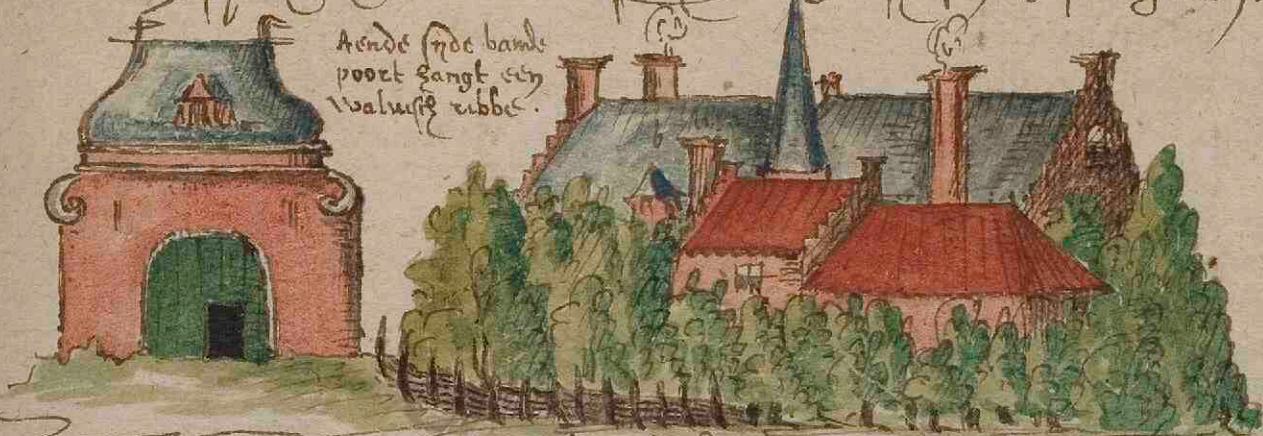 Aende sijde van de
poort hangt een
Walvisch ribbe.